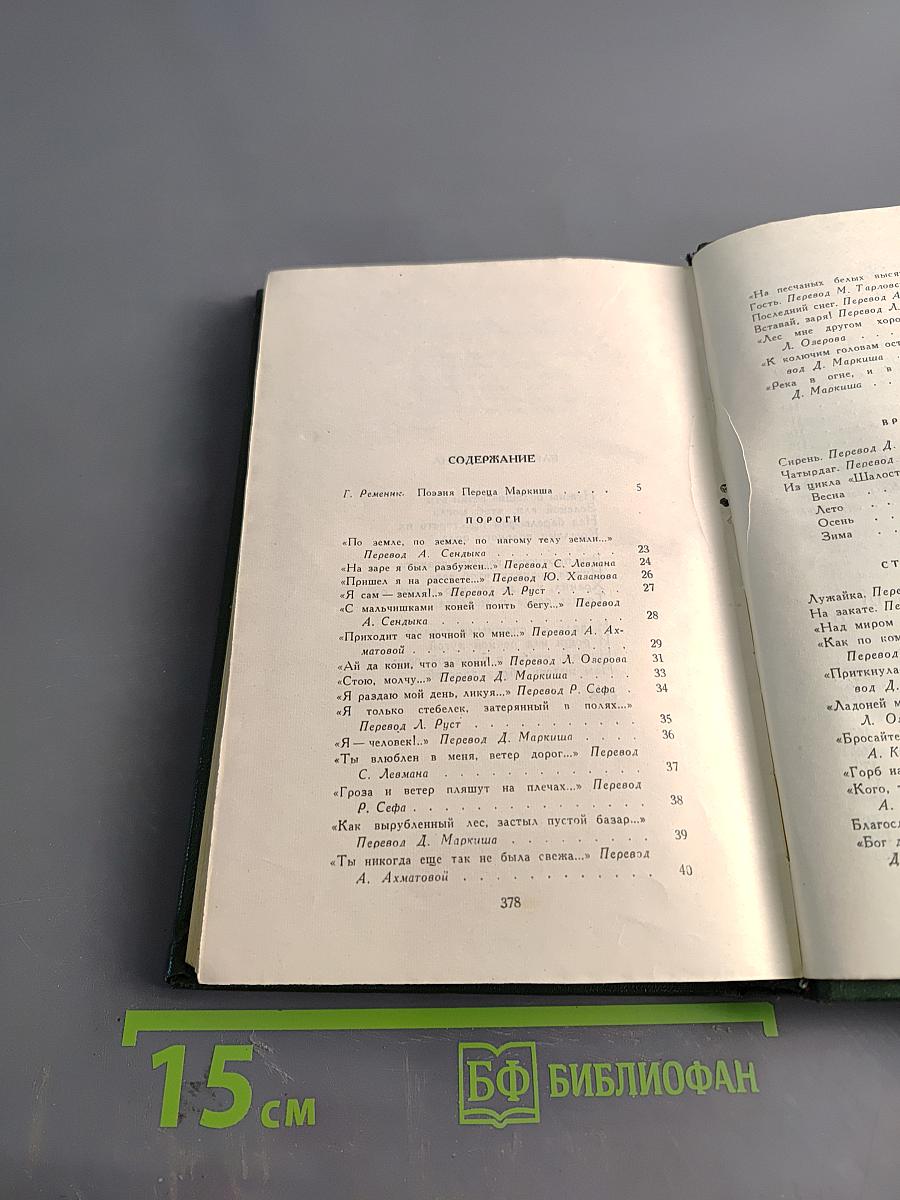 СОДЕРЖАНИЕ
Г. Ременик. Поэзия Переца Маркиша . . . . 5
ПОРОГИ
«По земле, по земле, по нагому телу земли...»
Перевод А. Сендыка . . . . . . . . 23
«На заре я был разбужен...» Перевод С. Левмана 24
«Пришел я на рассвете...» Перевод Ю. Хазанова 26
«Я сам — земля!..» Перевод Л. Руст . . . . . 27
«С мальчишками коней поить бегу...» Перевод
А. Сендыка . . . . . . . . . . . . 28
«Приходит час ночной ко мне...» Перевод А. Ах-
матовой . . . . . . . . . . . . . 29
«Ай да кони, что за кони!..» Перевод Л. Озерова 31
«Стою, молчу...» Перевод Д. Маркиша . . . . 33
«Я раздаю мой день, ликуя...» Перевод Р. Сефа . 34
«Я только стебелек, затерянный в полях...»
Перевод Л. Руст . . . . . . . . . . 35
«Я — человек!..» Перевод Д. Маркиша . . . . 36
«Ты влюблен в меня, ветер дорог...» Перевод
С. Левмана . . . . . . . . . . . . 37
«Гроза и ветер пляшут на плечах...» Перевод
Р. Сефа . . . . . . . . . . . . . . 38
«Как вырубленный лес, застыл пустой базар...»
Перевод Д. Маркиша . . . . . . . . 39
«Ты никогда еще так не была свежа...» Перевод
А. Ахматовой . . . . . . . . . . . 40
378
«На песчаных белых
Гость. Перевод М.
Последний снег. Перевод А
Вставай, заря! Перевод Л.
«Лес мне другом
Л. Озерова . . .
«К колючим головам
вод Д. Маркиша .
«Река в огне, и в
Д. Маркиша . .
ВР
Сирень. Перевод Д.
Чатырдаг. Перевод
Из цикла «Шалост
Весна . .
Лето . .
Осень .
Зима . .
СТ
Лужайка. Пере
На закате. Пе
«Над миром
«Как по ком
Перевод
«Приткнула
вод Д.
«Ладоней м
Л. Оз
«Бросайте
А. К
«Горб на
«Кого,
А.
Благосл
«Бог д
Д
15 см
БФ БИБЛИОФАН